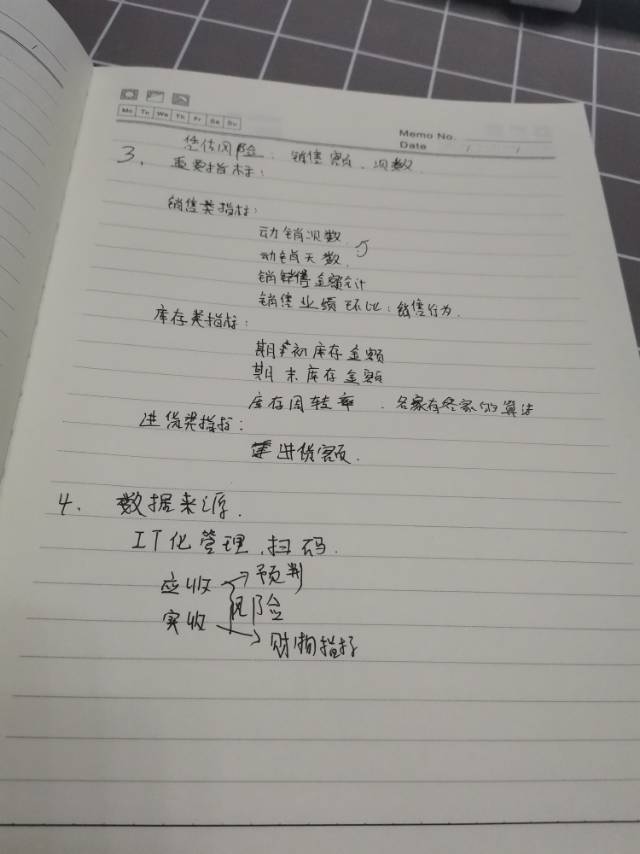 Mo Tu We Th Fr Sa Su
Memo No.
Date / /
风险:销售额、次数.
3、重要指标:
销售类指标:
动销次数
动销天数.
销售金额合计
销售业绩环比:销售行为.
库存类指标:
期初库存金额
期末库存金额
库存周转率.各家有各家的算法
进货类指标:
进货额.
4、数据来源.
IT化管理、扫码.
应收 → 预判
实收 风险
→ 财务指标